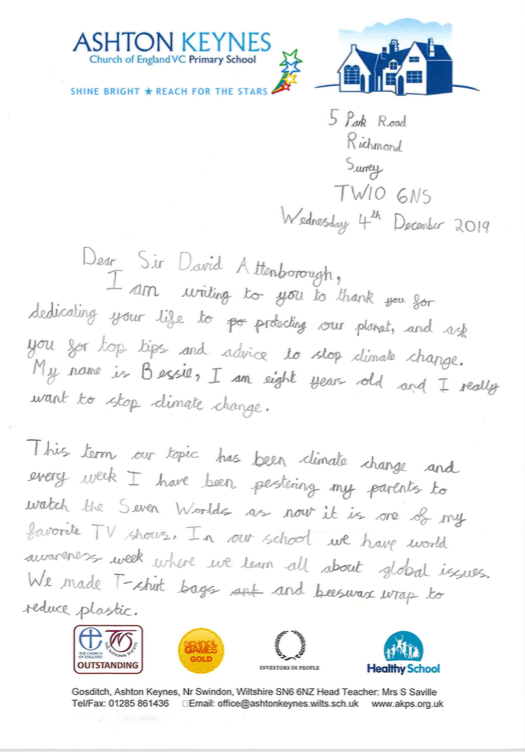 ASHTON KEYNES
Church of England VC Primary School
SHINE BRIGHT ★ REACH FOR THE STARS
5 Park Road
Richmond
Surrey
TW10 6NS
Wednesday 4th December 2019
Dear Sir David Attenborough,
I am writing to you to thank you for
dedicating your life to po protecting our planet, and ask
you for top tips and advice to stop climate change.
My name is Bessie, I am eight years old and I really
want to stop climate change.
This term our topic has been climate change and
every week I have been pestering my parents to
watch the Seven Worlds as now it is one of my
favorite TV shows. In our school we have world
awareness week where we learn all about global issues.
We made T-shirt bags ant and beeswax wrap to
reduce plastic.
THE CHURCH
OF ENGLAND
OUTSTANDING
SCHOOL
GAMES
GOLD
INVESTORS IN PEOPLE
Healthy School
Gosditch, Ashton Keynes, Nr Swindon, Wiltshire SN6 6NZ Head Teacher: Mrs S Saville
Tel/Fax: 01285 861436 □Email: office@ashtonkeynes.wilts.sch.uk www.akps.org.uk